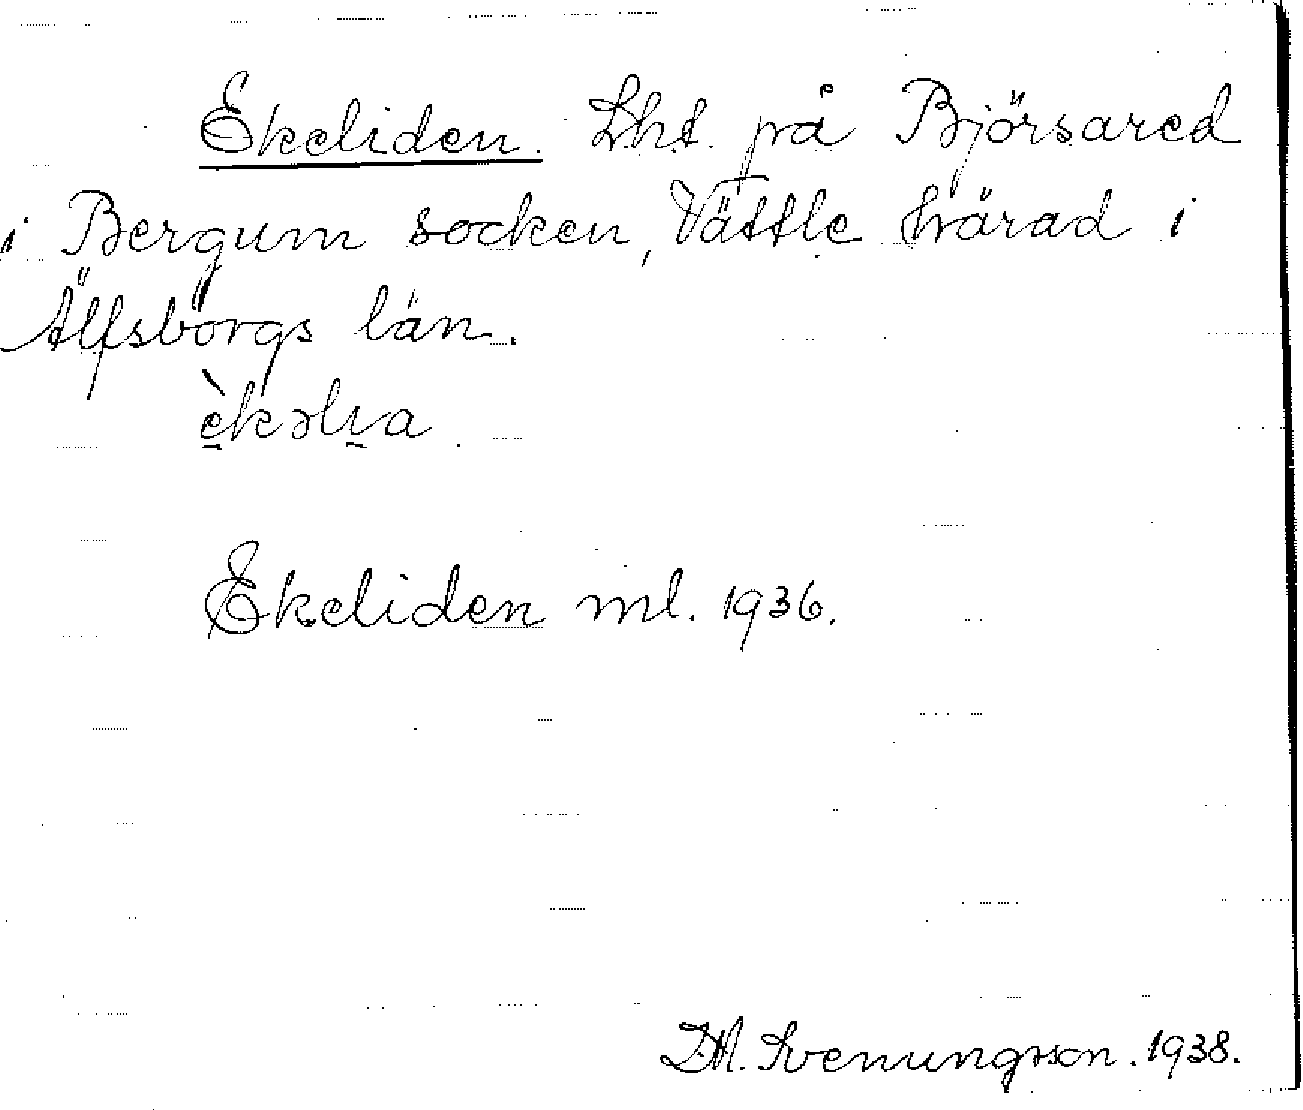 Ekeliden. Lht. på Björsared
i Bergum socken, Vättle härad i
Älfsborgs län.
èkəlıa.
Ekeliden ml. 1936.
Svenungsson. 1938.